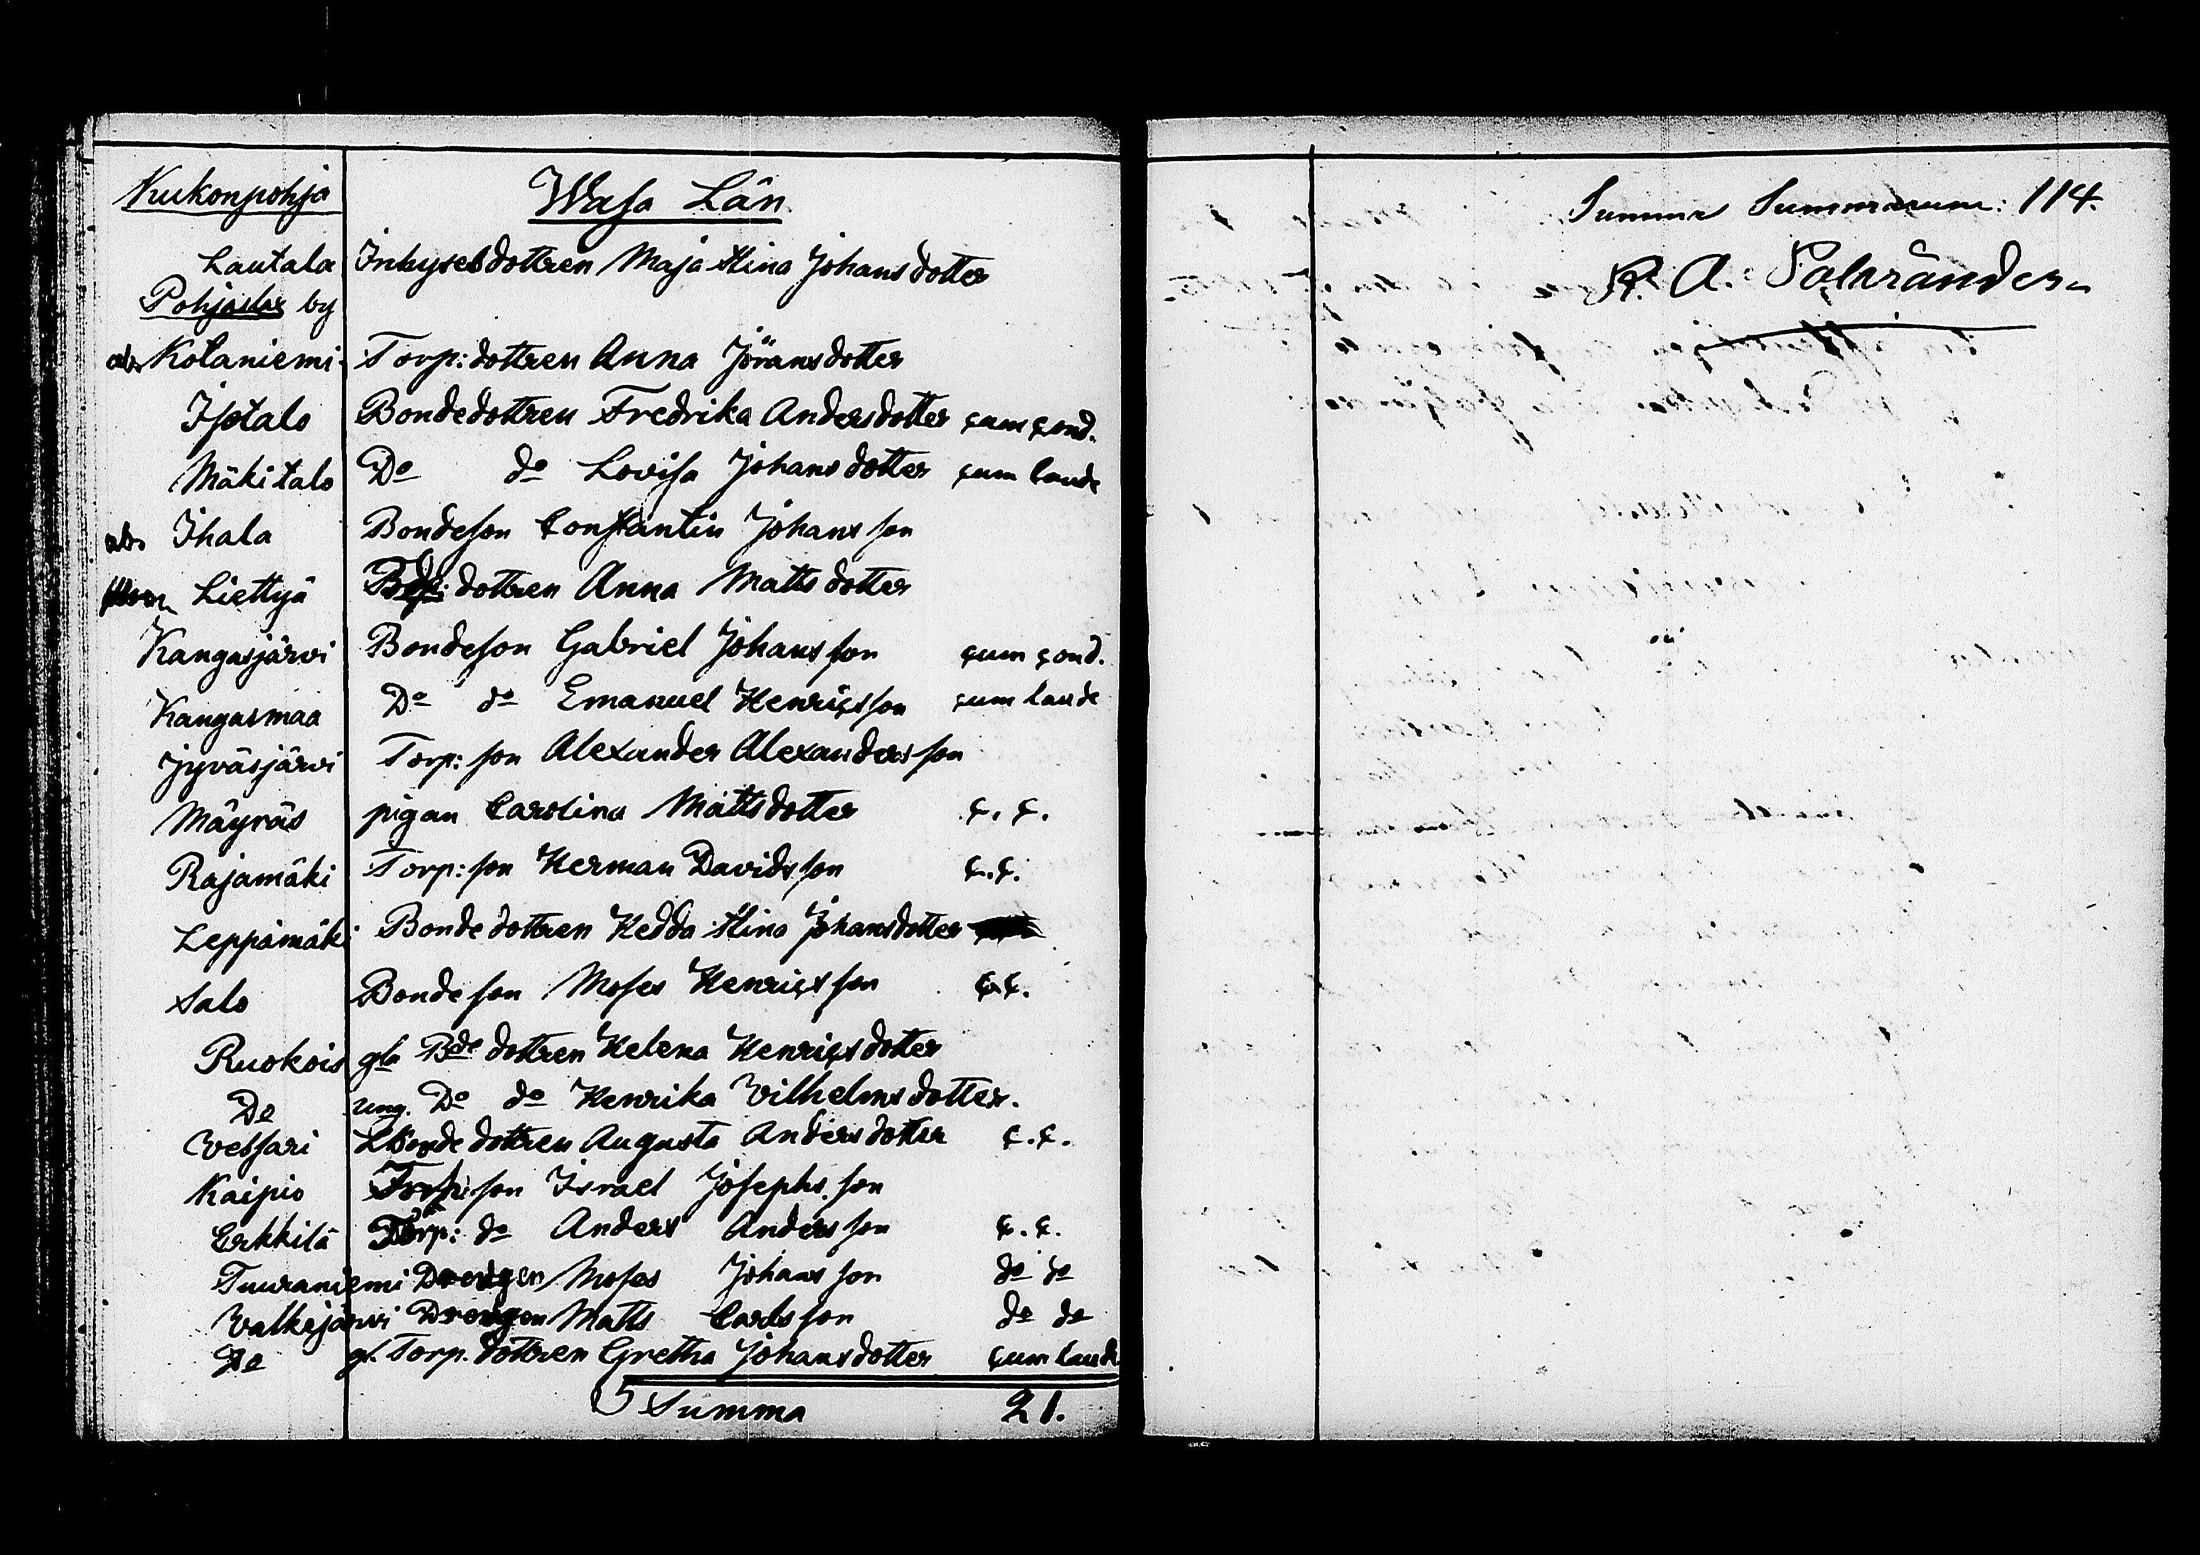 Kukonpohja Wasa Län
Lautala Inhysesdottren Maja Stina Johansdotter
Pohjaslar by
abs Kotaniemi Torp: dottren Anna Jöransdotter
Isotalo Bondedottren Fredrika Andersdotter cum cond.
Mäkitalo Do do Lovisa Johansdotter cum laude
abs Ihala Bondeson Constantin Johansson
Liettyä dottren Anna Mattsdotter
Kangasjärvi Bondeson Gabriel Johansson cum cond.
Kangasmaa Do do Emanuel Henricsson cum laude
Jyväsjärvi Torp: son Alexander Alexandersson
Mäyräs pigan Carolina Mattsdotter c. c.
Rajamäki Torp: son Herman Davidsson c. c.
Leppämäki Bondedottren Hedda Stina Johansdotter
Salo Bondeson Moses Henricsson c. c.
Ruokois gla Bde dottren Helena Henricsdotter
Do ung. Do do Henrika Vilhelmsdotter.
Vessari Bondedottren Augusta Andersdotter c. c.
Kaipio Torp: son Israel Josephsson
Erkkilä Torp: do Anders Andersson c. c.
Tuuraniemi Drengen Moses Johansson do do
Valkejärvi Drengen Matts Carlsson do do
Do gl. Torp. dottren Gretha Johansdotter cum laude
Summa 21.
Summa Summarum: 114.
A.